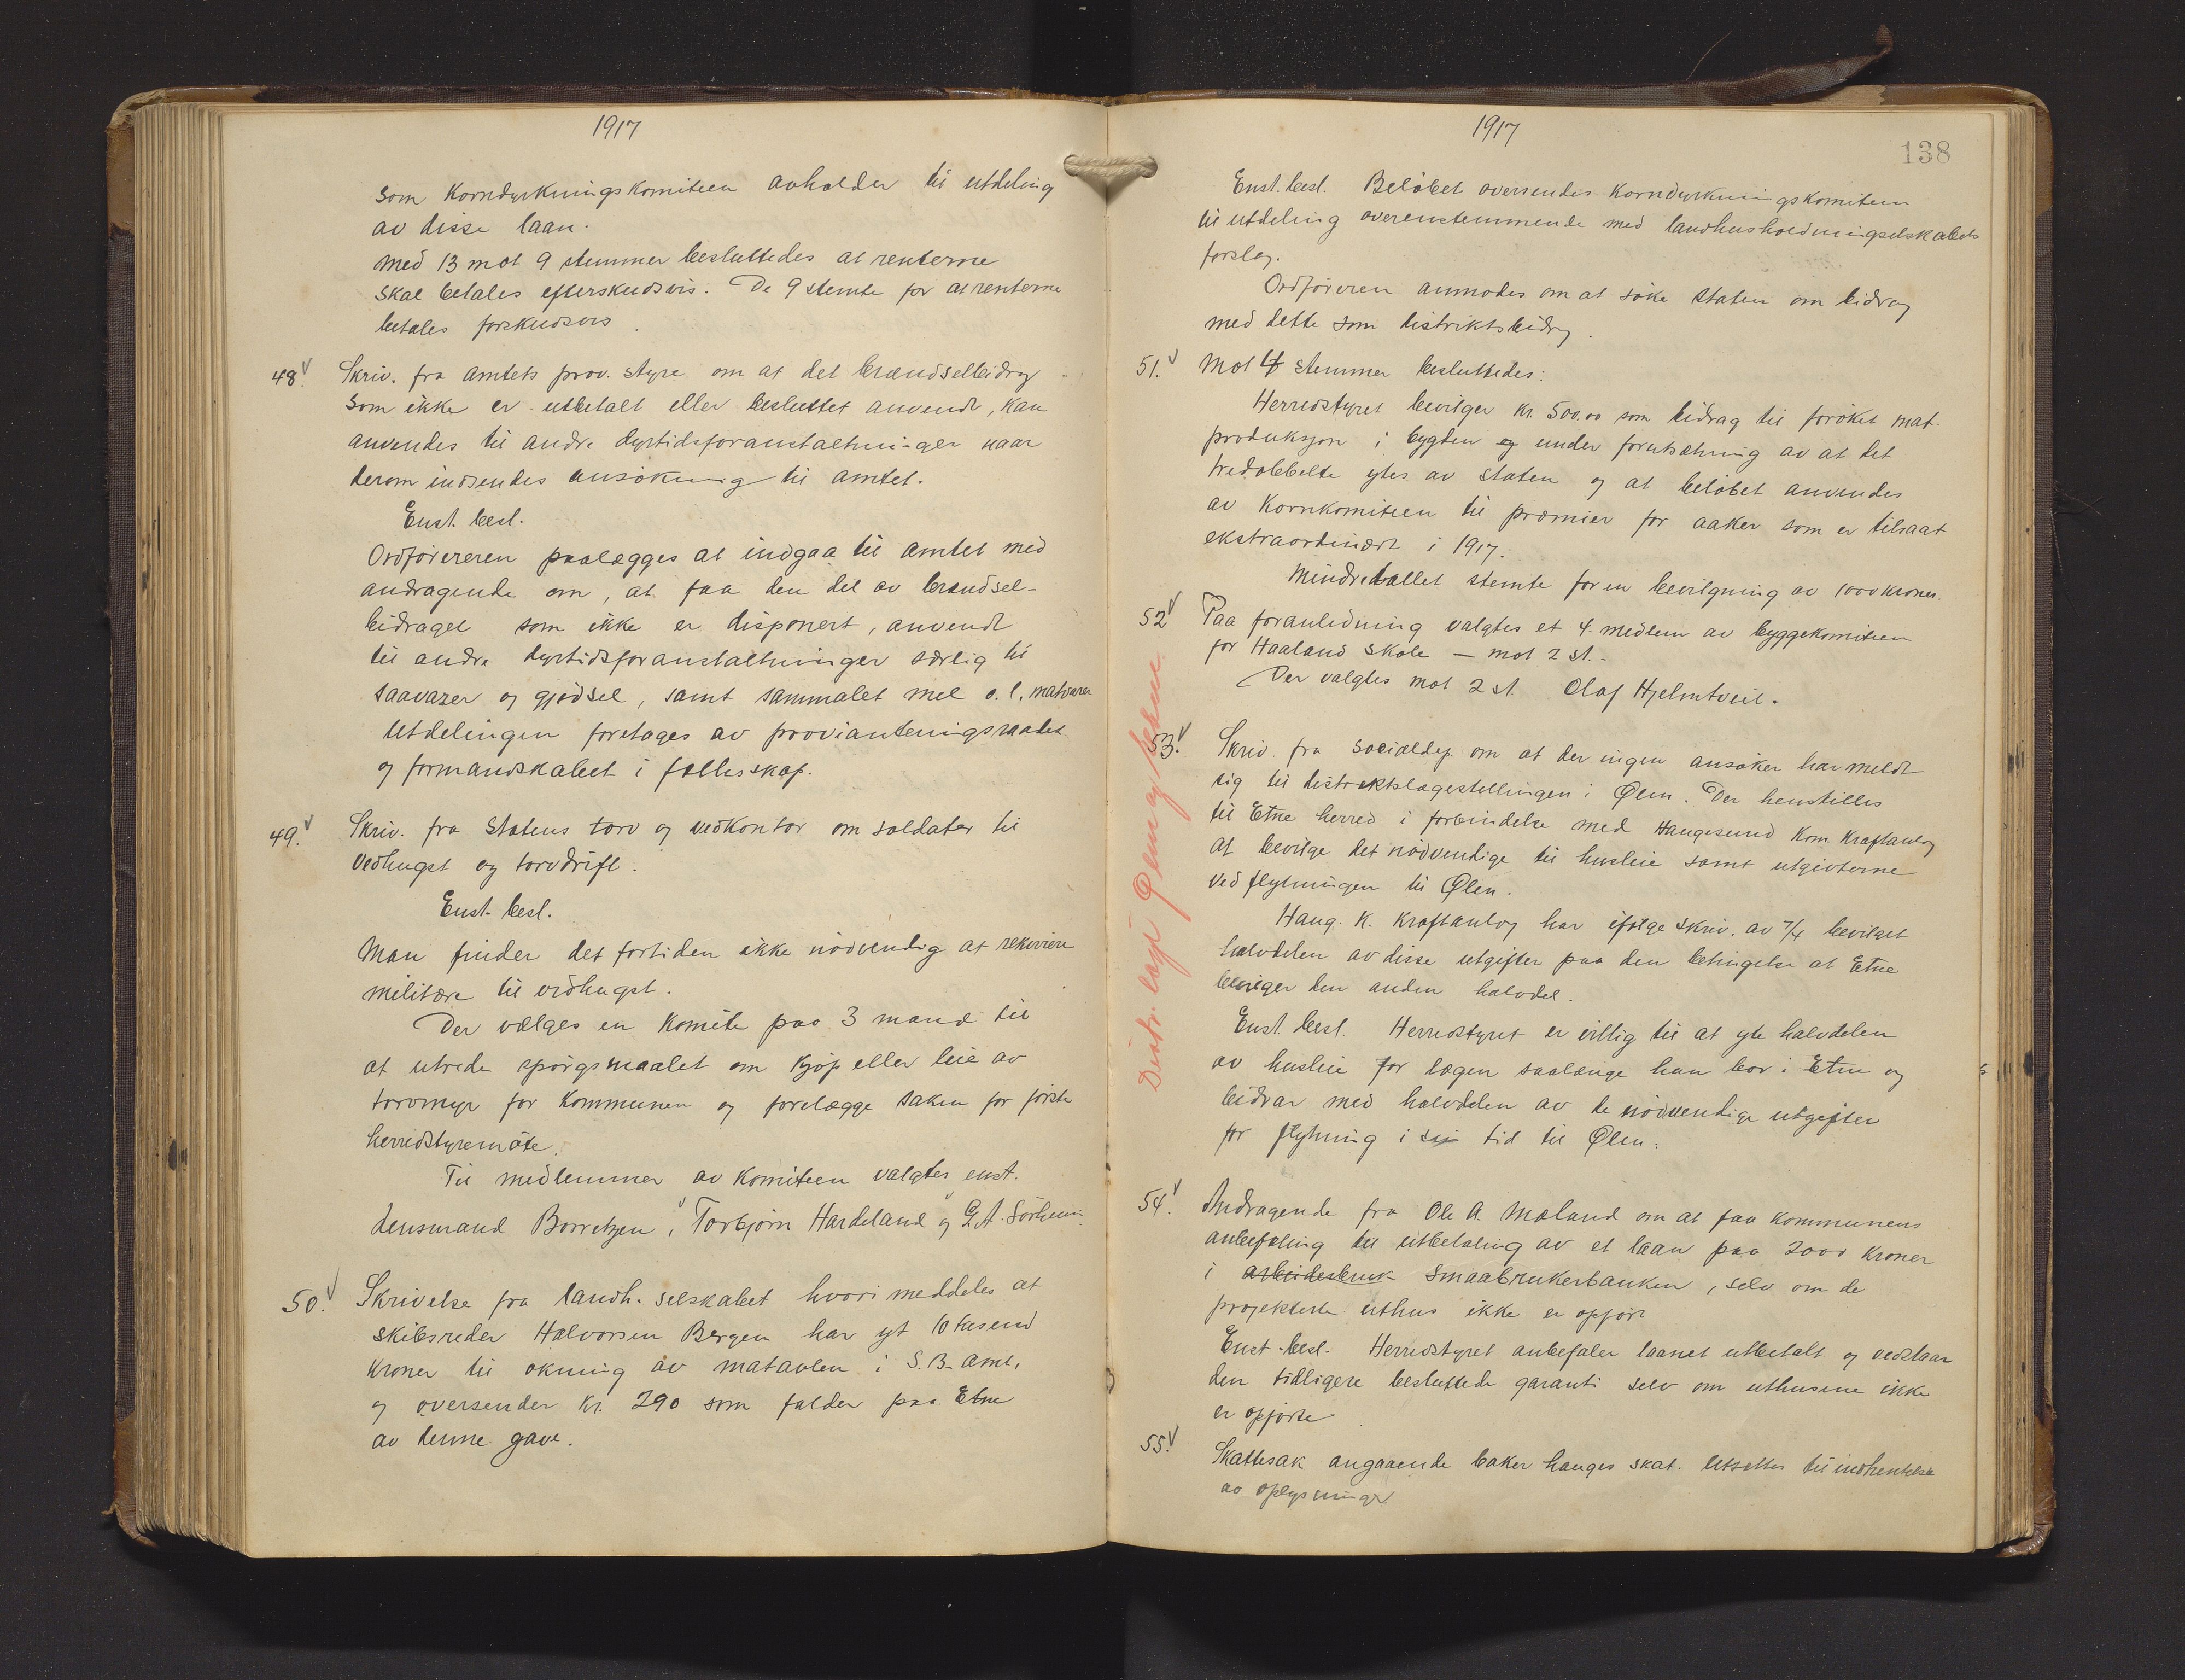 1917
som Korndyrkningskomiteen avholder til utdeling
av disse laan.
Med 13 mot 9 stemmer besluttedes at renterne
skal betales efterskudsvis. De 9 stemte for at renterne
betales forskudsvis.
48. Skriv. fra amtets prov. styre om at det brændselbidrag
som ikke er utbetalt eller besluttet anvendt, kan
anvendes til andre dyrtidsforanstaltninger naar
derom indsendes ansøkning til amtet.
Enst. besl.
Ordføreren paalægges at indgaa til amtet med
andragende om, at faa den del av brændsel-
bidraget som ikke er disponert, anvendt
til andre dyrtidsforanstaltninger særlig til
saavarer og gjødsel, samt sammalet mel o.l. matvarer
Utdelingen foretages av provianteringsraadet
og formandskabet i fællesskap.
49. Skriv. fra Statens torv og vedkontor om soldater til
vedhugst og torvdrift.
Enst. besl.
Man finder det fortiden ikke nødvendig at rekvirere
militære til vedhugst.
Der vælges en komite paa 3 mand til
at utrede spørgsmaalet om kjøp eller leie av
torvmyr for kommunen og forelægge saken for første
herredstyremøte.
Til medlemmer av komiteen valgtes enst.
Lensmand Borretzen, Torbjørn Hardeland og G.A. Sørheim
50. Skrivelse fra landh. selskabet hvori meddeles at
skibsreder Halvorsen Bergen har yt 10 tusend
kroner til økning av matavlen i S.B. amt,
og oversender kr. 290 som falder paa Etne
av denne gave.
1917
138
Enst. besl. Beløbet oversendes Korndyrkningskomiteen
til utdeling overenstemmende med landhusholdningselskabets
forslag.
Ordføreren anmodes om at søke staten om bidrag
med dette som distriktsbidrag.
51. Mot 4 stemmer besluttedes:
Herredstyret bevilger kr. 500.00 som bidrag til forøket mat-
produksjon i bygden og under forutsætning av at det
tredobbelte ytes av staten og at beløbet anvendes
av Kornkomiteen til præmier for aaker som er tilsaat
ekstraordinært i 1917.
Mindretallet stemte for en bevilgning av 1000 kroner.
52 Paa foranledning valgtes et 4. medlem av byggekomiteen
for Haaland Skole — mot 2 st.
Der valgtes mot 2 st. Olaf Hjelmtveit.
Distr. læge Ølen og Etne
53. Skriv. fra Socialdep. om at der ingen ansøker har meldt
sig til distriktslægestillingen i Ølen. Der henstilles
til Etne herred i forbindelse med Haugesund Kom. Kraftanlæg
at bevilge det nødvendige til husleie samt utgivterne
ved flytningen til Ølen.
Haug. K. Kraftanlæg har ifølge skriv. av 7/4 bevilget
halvdelen av disse utgifter paa den betingelse at Etne
bevilger den anden halvdel.
Enst. besl. Herredstyret er villig til at yte halvdelen
av husleie for lægen saalænge han bor i Etne og
bidrar med halvdelen av de nødvendige utgifter
for flytning i sin tid til Ølen.
54. Andragende fra Ole A. Mæland om at faa kommunens
anbefaling til utbetaling av et laan paa 2000 kroner
i arbeiderbruk Smaabrukerbanken, selv om de
projekterte uthus ikke er opført
Enst. besl. Herredstyret anbefaler laanet utbetalt og vedstaar
den tidligere besluttede garanti selv om uthusene ikke
er opførte
55. Skattesak angaaende baker Hauges skat. Utsættes til indhentelse
av oplysninger